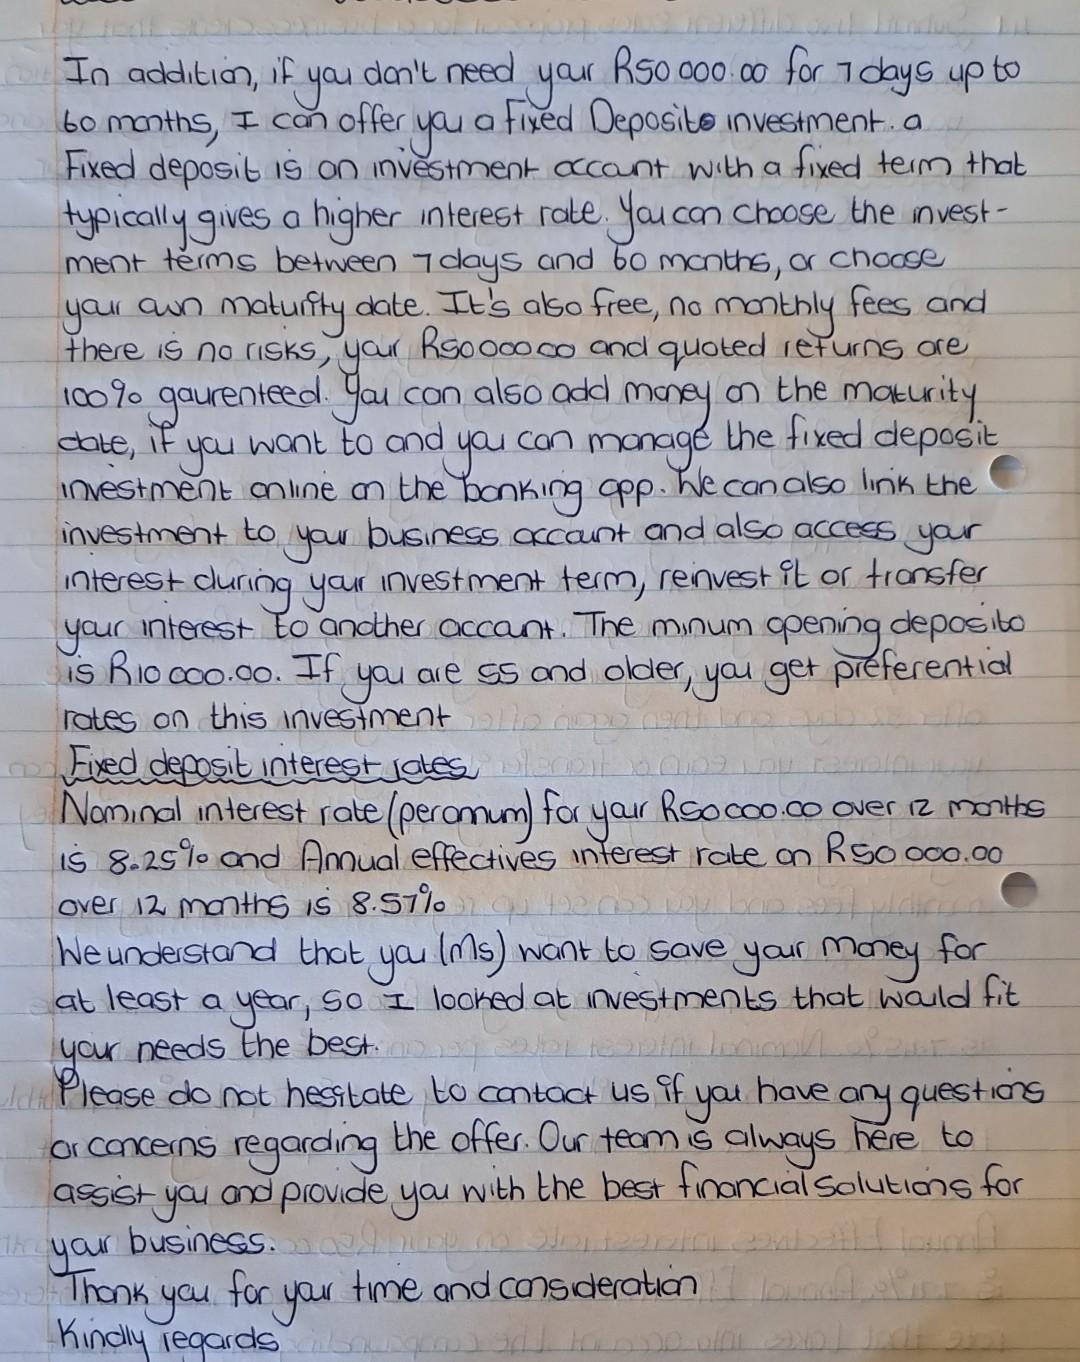 In addition, if you don't need your R50 000.00 for 7 days up to
60 months, I can offer you a Fixed Deposito investment. a
Fixed deposit is an investment account with a fixed term that
typically gives a higher interest rate. You can choose the invest-
ment terms between 7 days and 60 months, or choose
your own maturity date. It's also free, no monthly fees and
there is no risks, your R5000000 and quoted returns are
100% gaurenteed. You can also add money on the maturity
date, if you want to and you can manage the fixed deposit
investment online on the banking app. We can also link the
investment to your business account and also access your
interest during your investment term, reinvest it or transfer
your interest to another account. The minum opening deposito
is R10 000.00. If you are 55 and older, you get preferential
rates on this investment
Fixed deposit interest rates
Nominal interest rate (per annum) for your R50 000.00 over 12 months
is 8.25% and Annual effectives interest rate on R50 000.00
over 12 months is 8.57%
We understand that you (Ms) want to save your money for
at least a year, so I looked at investments that would fit
your needs the best.
Please do not hesitate to contact us if you have any questions
or concerns regarding the offer. Our team is always here to
assist you and provide you with the best financial solutions for
your business.
Thank you for your time and consideration
Kindly regards